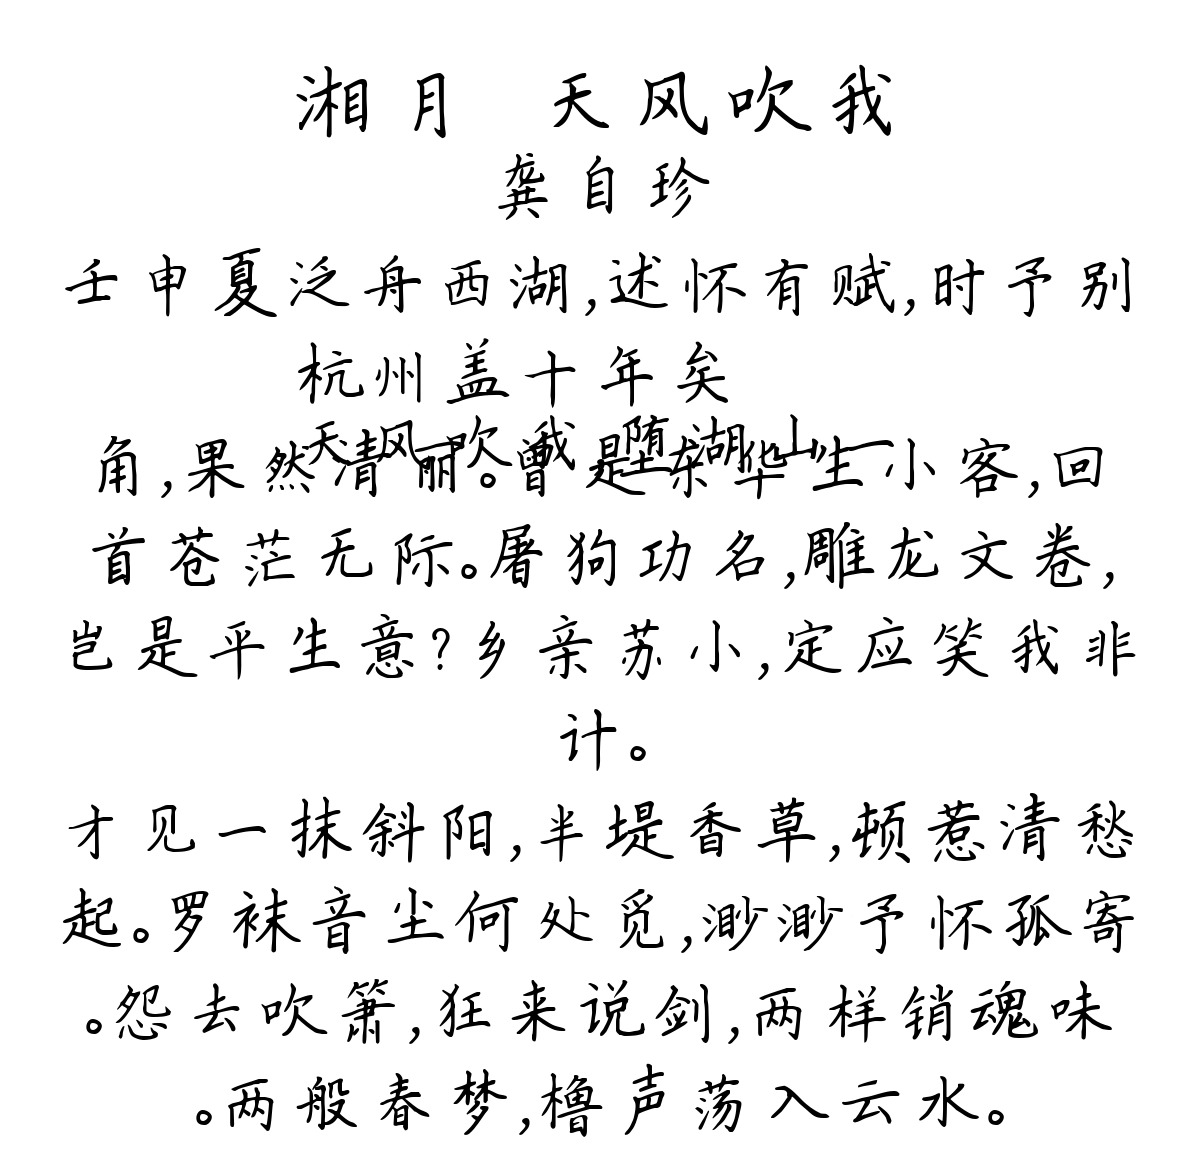 湘月 天风吹我
龚自珍
壬申夏泛舟西湖,述怀有赋,时予别
杭州盖十年矣
天风吹我,堕湖山一
角,果然清丽。曾是东华生小客,回
首苍茫无际。屠狗功名,雕龙文卷,
岂是平生意?乡亲苏小,定应笑我非
计。
才见一抹斜阳,半堤香草,顿惹清愁
起。罗袜音尘何处觅,渺渺予怀孤寄
。怨去吹箫,狂来说剑,两样销魂味
。两般春梦,橹声荡入云水。